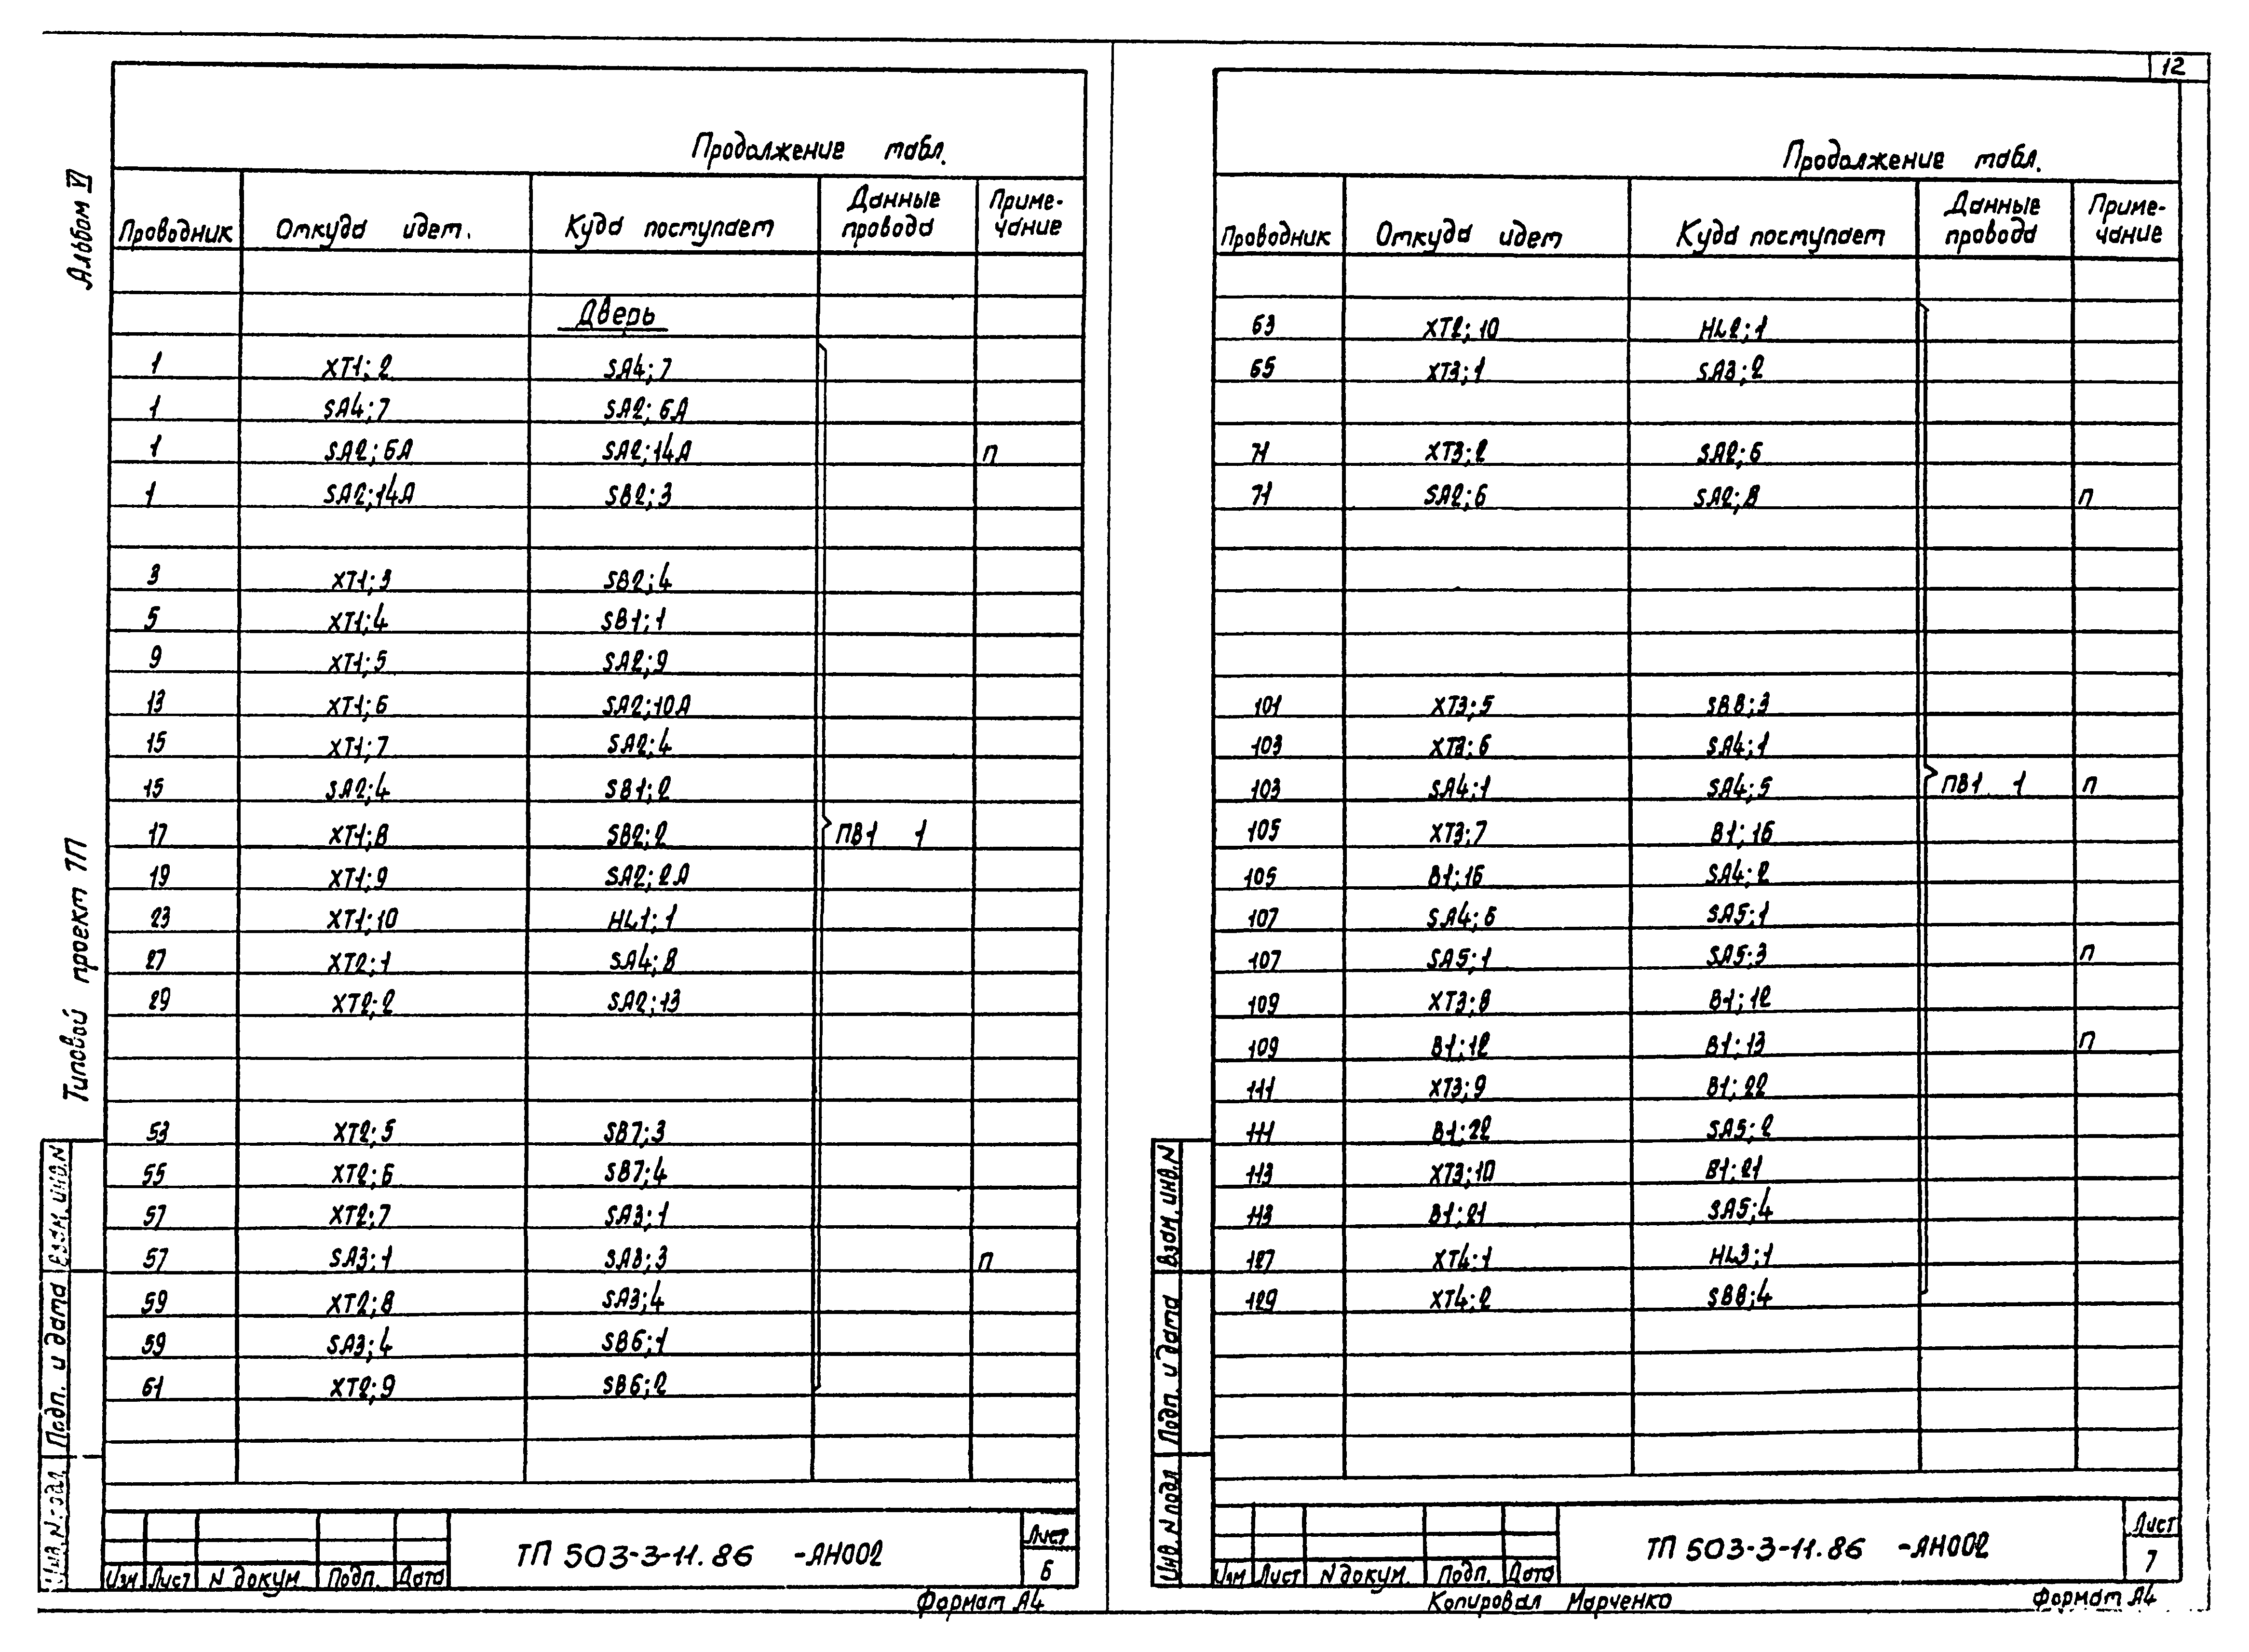 12
Альбом VI
Типовой проект ТП
Продолжение табл.
Проводник Откуда идет. Куда поступает Данные провода Приме-чание
Дверь
1 ХТ1;2 SA4;7
1 SA4;7 SA2;6А
1 SA2;6А SA2;14А П
1 SA2;14А SB2;3
3 ХТ1;3 SB2;4
5 ХТ1;4 SB1;1
9 ХТ1;5 SA2;9
13 ХТ1;6 SA2;10А
15 ХТ1;7 SA2;4
15 SA2;4 SB1;2
17 ХТ1;8 SB2;2 ПВ1 1
19 ХТ1;9 SA2;2А
23 ХТ1;10 HL1;1
27 ХТ2;1 SA4;8
29 ХТ2;2 SA2;13
53 ХТ2;5 SB7;3
55 ХТ2;6 SB7;4
57 ХТ2;7 SA3;1
57 SA3;1 SA3;3 П
59 ХТ2;8 SA3;4
59 SA3;4 SB6;1
61 ХТ2;9 SB6;2
Взам. инв. N
Подп. и дата
Инв. N подл
Изм Лист N докум. Подп. Дата
ТП 503-3-11.86 -АН002
Лист
6
Формат А4
Продолжение табл.
Проводник Откуда идет Куда поступает Данные провода Приме-чание
63 ХТ2;10 HL2;1
65 ХТ3;1 SA3;2
71 ХТ3;2 SA2;6
71 SA2;6 SA2;8 П
101 ХТ3;5 SB8;3
103 ХТ3;6 SA4;1
103 SA4;1 SA4;5 ПВ1 1 П
105 ХТ3;7 В1;16
105 В1;16 SA4;2
107 SA4;6 SA5;1
107 SA5;1 SA5;3 П
109 ХТ3;8 В1;12
109 В1;12 В1;13 П
111 ХТ3;9 В1;22
111 В1;22 SA5;2
113 ХТ3;10 В1;21
113 В1;21 SA5;4
127 ХТ4;1 HL3;1
129 ХТ4;2 SB8;4
Взам. инв. N
Подп. и дата
Инв. N подл
Изм Лист N докум. Подп. Дата
ТП 503-3-11.86 -АН002
Лист
7
Копировал Марченко
Формат А4